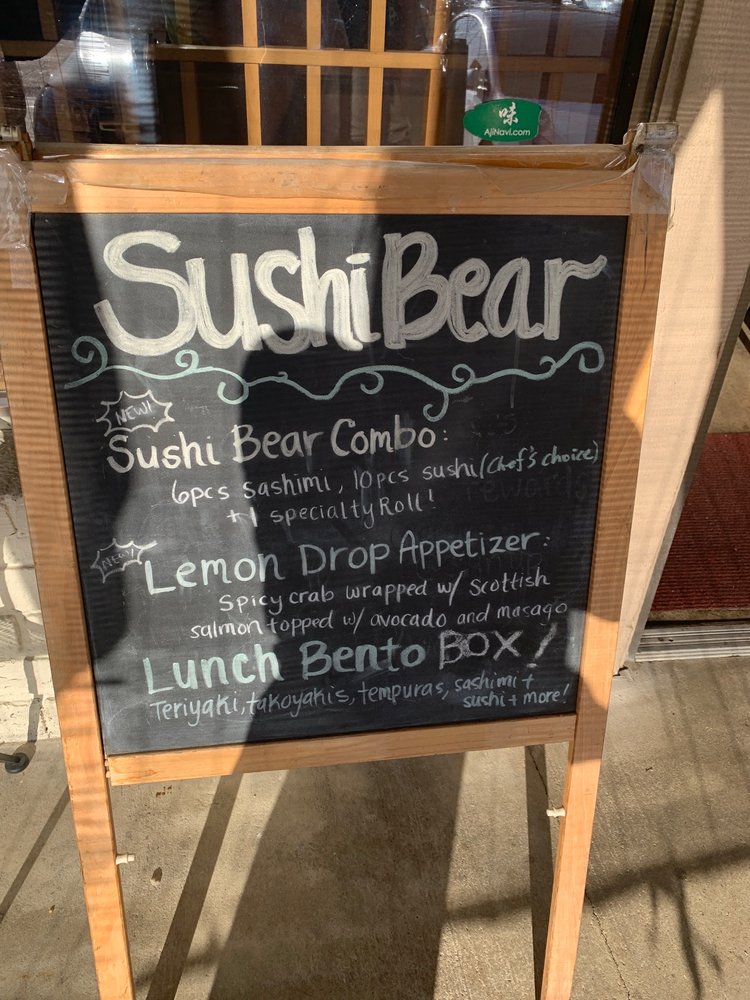 味
AjiNavi.com
SushiBear
NEW!
Sushi Bear Combo:
6pcs sashimi, 10pcs sushi (Chef's choice)
+1 specialty Roll!
NEW!
Lemon Drop Appetizer:
Spicy crab wrapped w/ Scottish
salmon topped w/ avocado and masago
Lunch Bento BOX!
Teriyaki, takoyakis, tempuras, sashimi +
sushi + more!